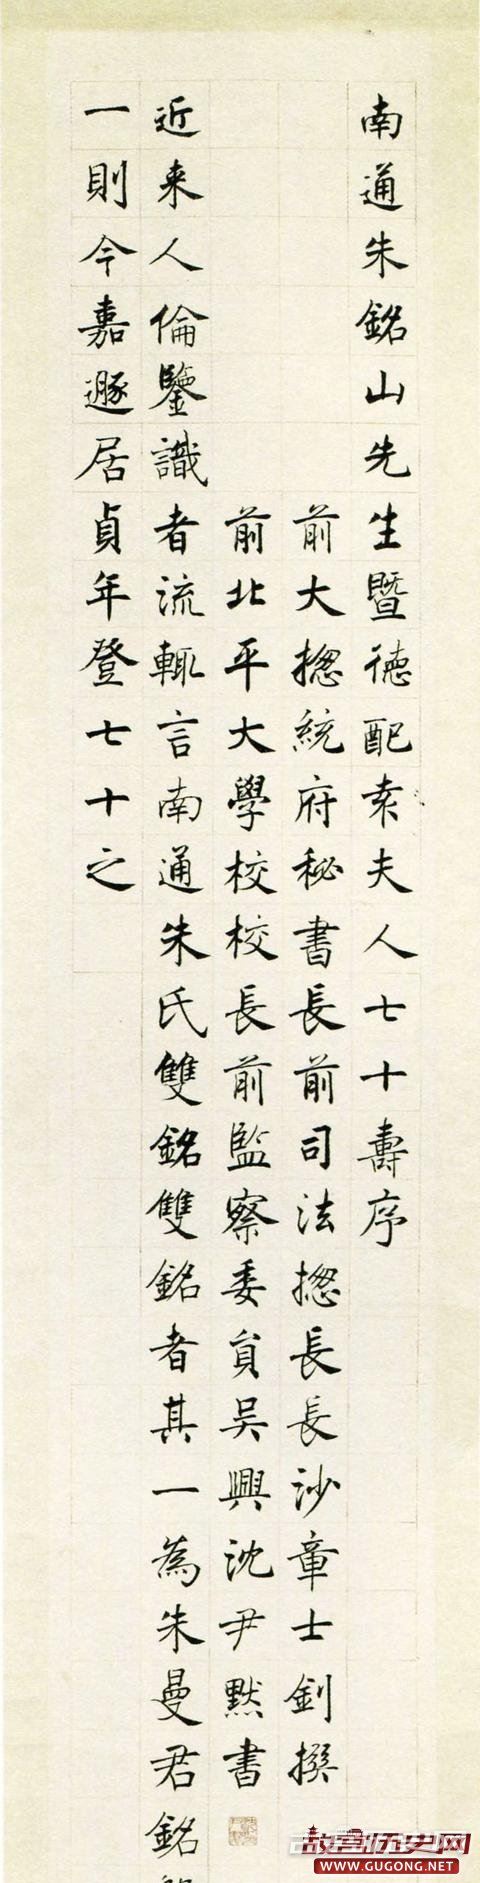 南通朱銘山先生暨德配袁夫人七十壽序
前大揔統府秘書長前司法揔長長沙章士釗撰
前北平大學校校長前監察委員吳興沈尹默書
近来人倫鑒識者流輒言南通朱氏雙銘雙銘者其一為朱曼君銘
一則今嘉遯居貞年登七十之
故宫历史网
WWW.GUGONG.NET